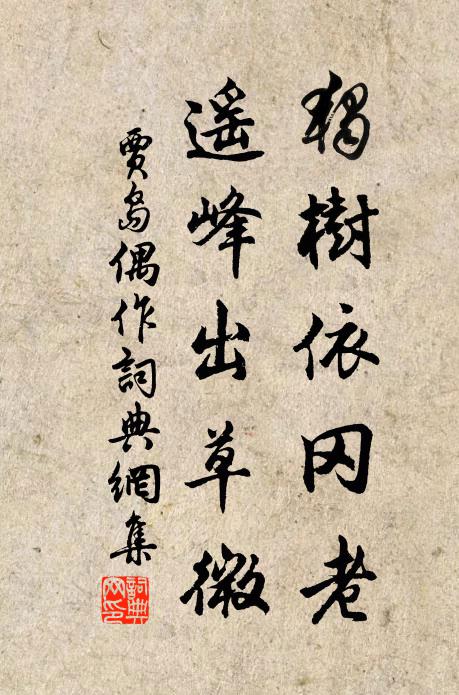 獨樹依岡老
遙峰出草微
賈島偶作詞典網集
詞典
网印